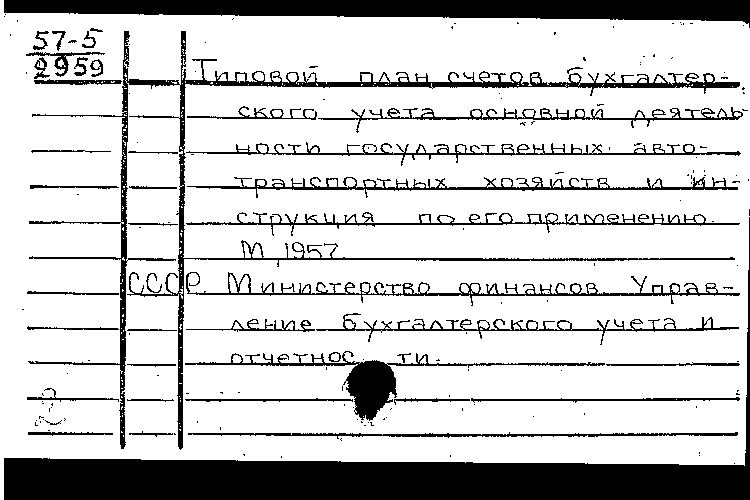 57-5
2959
Типовой план счетов бухгалтер-
ского учета основной деятель-
ности государственных авто-
транспортных хозяйств и ин-
струкция по его применению.
М., 1957.
СССР. Министерство финансов. Управ-
ление бухгалтерского учета и
отчетнос ти.
2